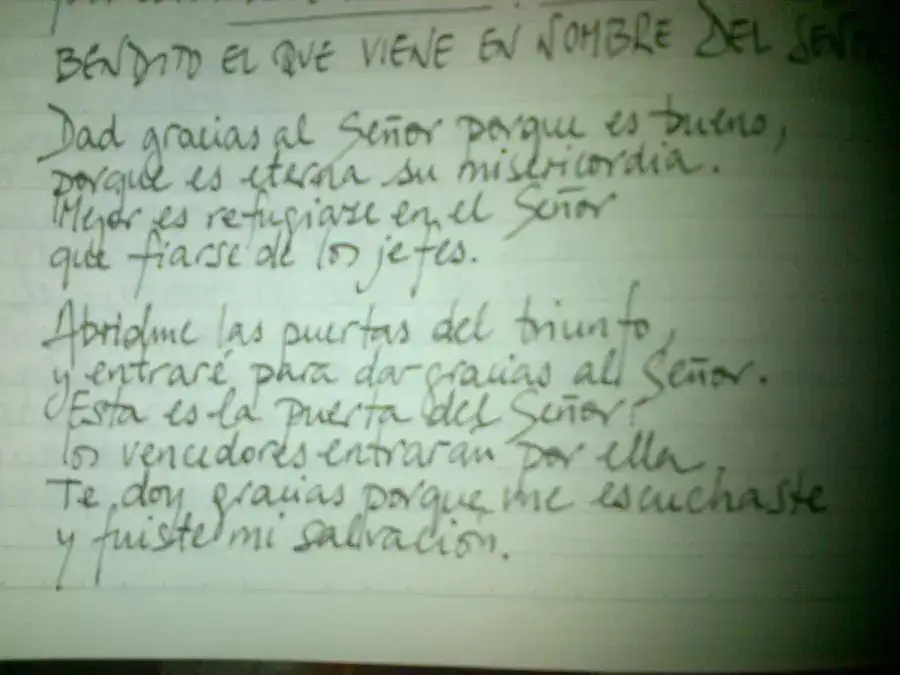 BENDITO EL QUE VIENE EN NOMBRE DEL SEÑOR
Dad gracias al Señor porque es bueno,
porque es eterna su misericordia.
Mejor es refugiarse en el Señor
que fiarse de los jefes.
Abridme las puertas del triunfo,
y entraré para dar gracias al Señor.
Esta es la puerta del Señor:
los vencedores entraran por ella.
Te doy gracias porque me escuchaste
y fuiste mi salvación.